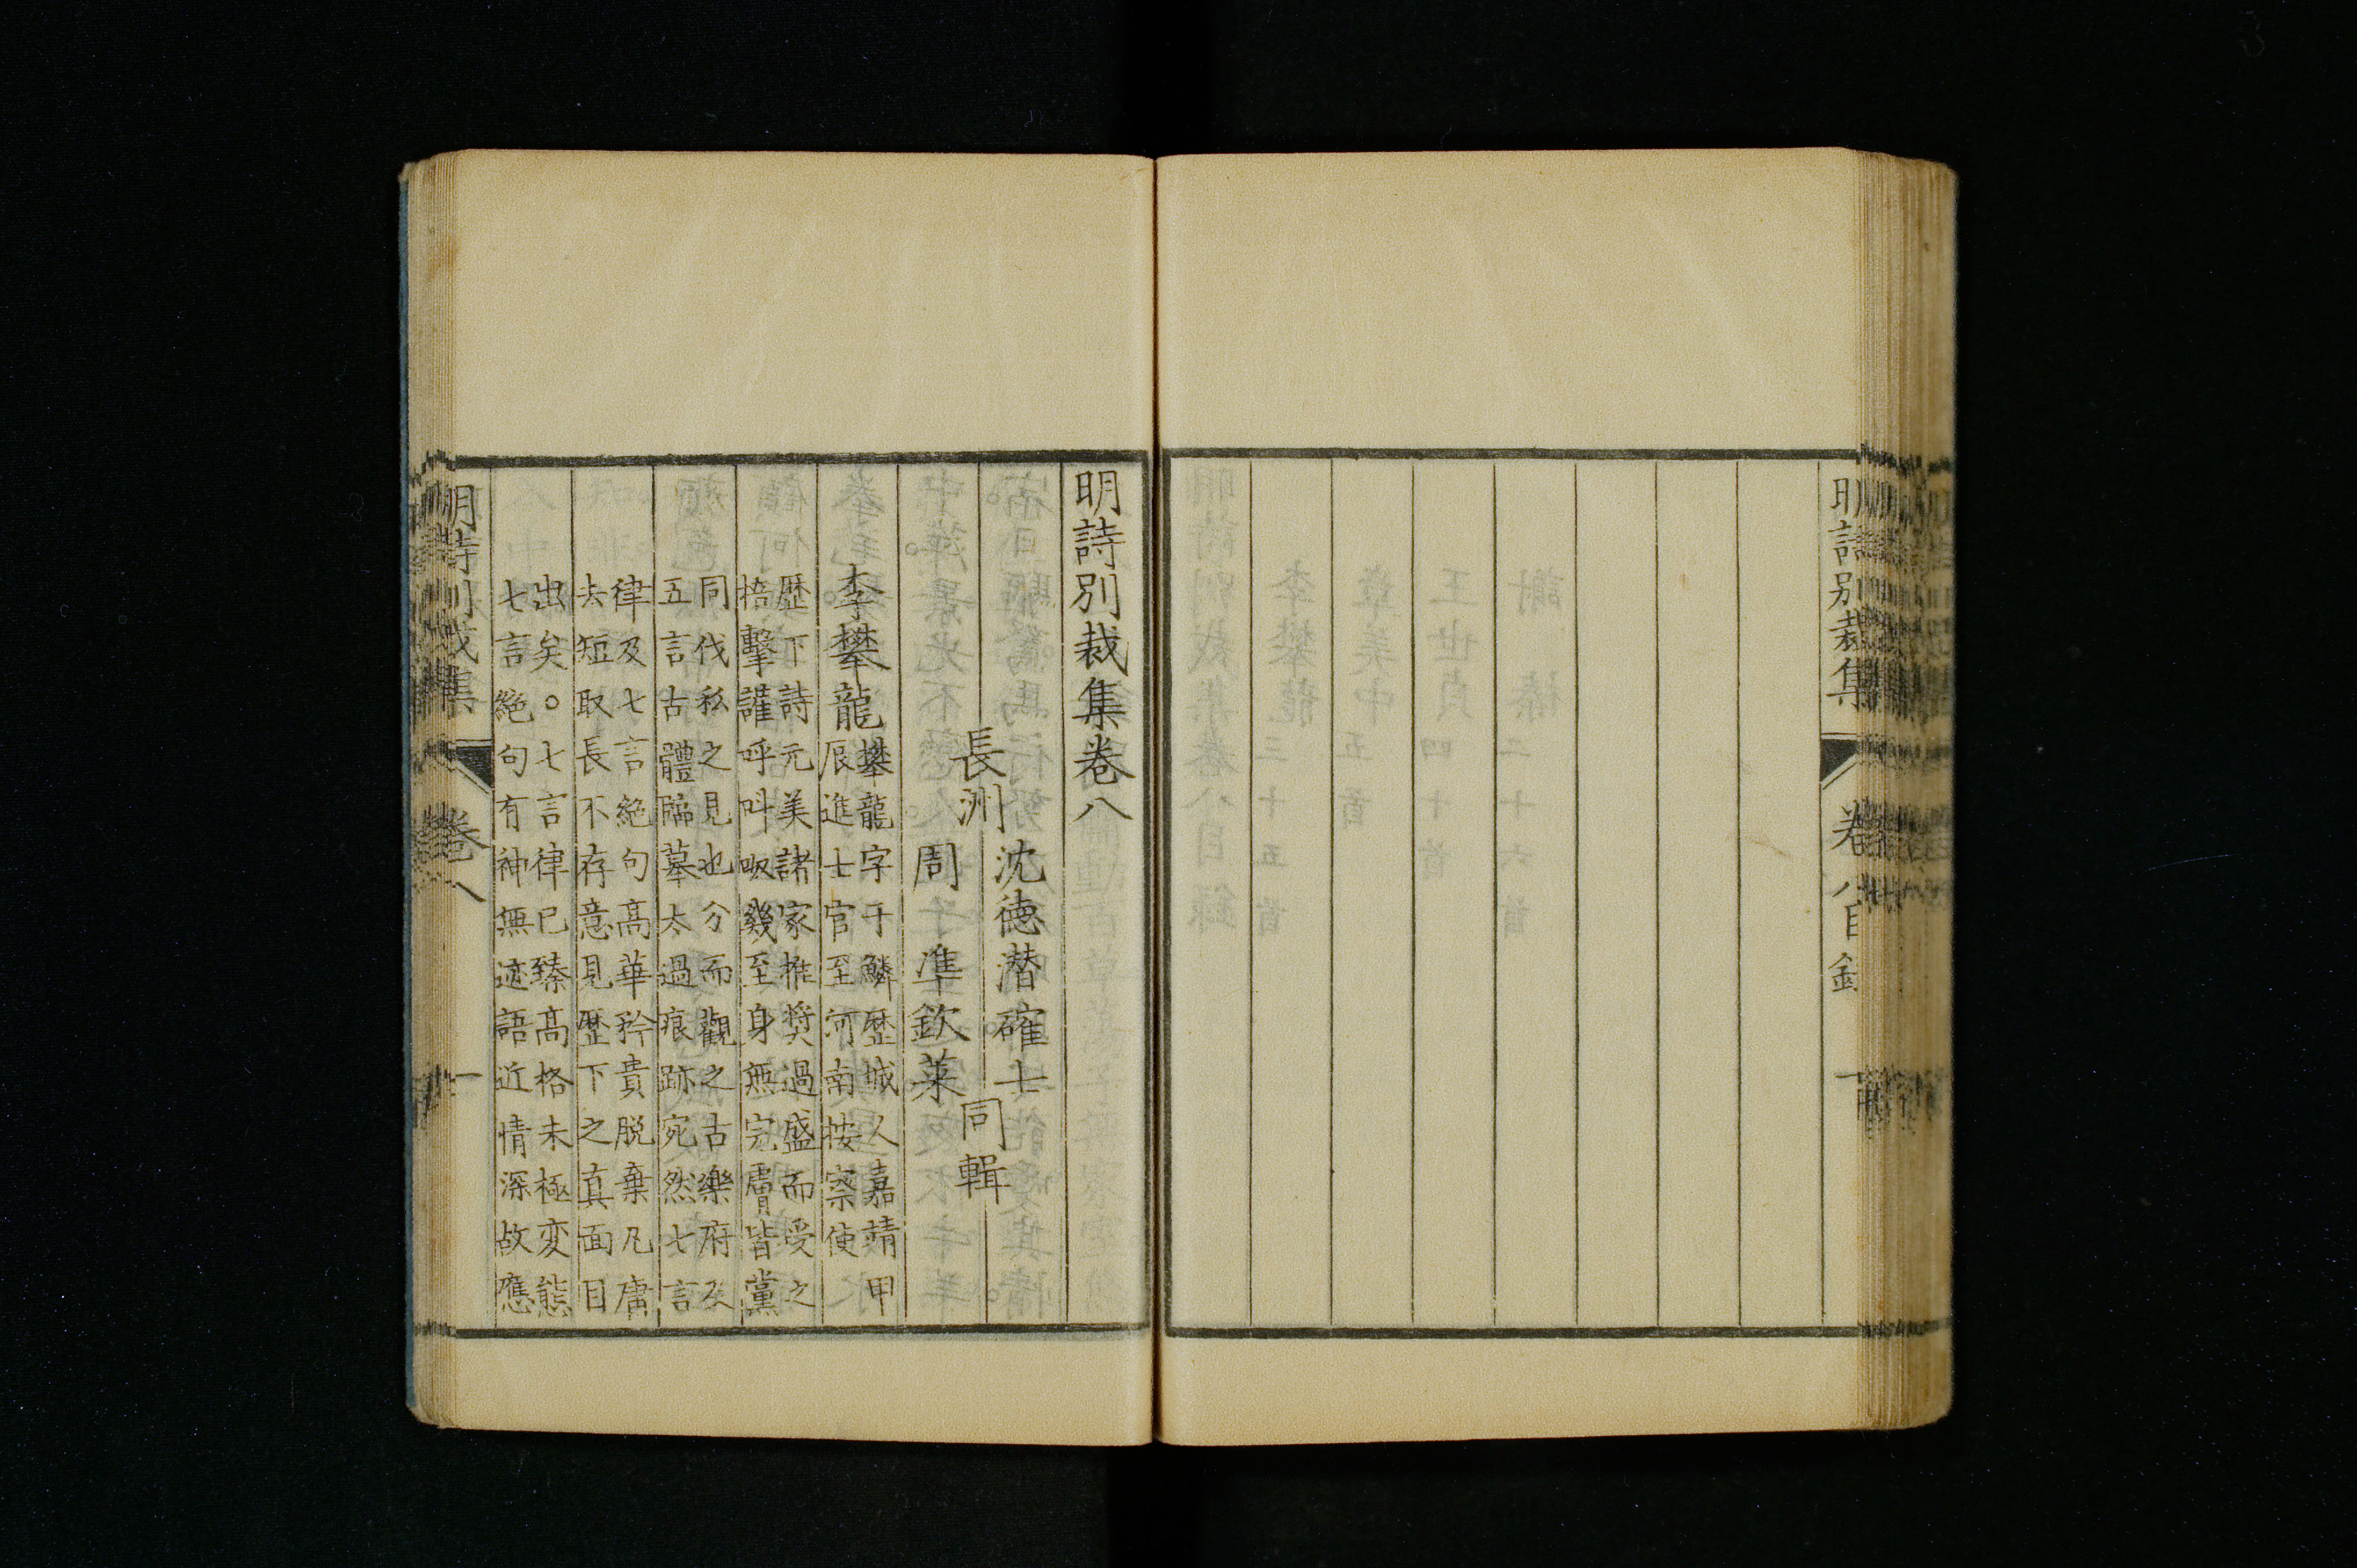 明詩別裁集 卷八目錄 一
明詩別裁集卷八
長洲 沈德潛確士 同輯
周準欽萊
李攀龍
攀龍字于鱗歷城人嘉靖甲
辰進士官至河南按察使
歷下詩元美諸家推奬過盛而受之
掊擊讙呼叫呶幾至身無完膚皆黨
同伐私之見也分而觀之古樂府及
五言古體臨摹太過痕跡宛然七言
律及七言絕句高華矜貴脫棄凡庸
去短取長不存意見歷下之真面目
出矣。七言律已臻高格未極変態
七言絕句有神無迹語近情深故應
明詩別裁集 卷八 一